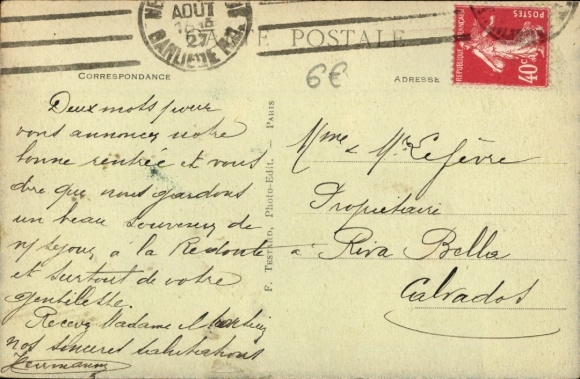 AOUT
27
BANLIEUE
E POSTALE
POSTES
REPUBLIQUE FRANÇAISE
40c
CORRESPONDANCE
6€
ADRESSE
Deux mots pour
vous annoncer notre
bonne rentrée et vous
dire que nous gardons
un beau souvenir de
n/ séjour à la Redoute
et surtout de votre
gentillesse.
Recevez Madame
nos sinceres salutations
Hermann
F. TESTARD, Photo-Edit. - PARIS
Mme & Mr Lefèvre
Propriétaire
à Riva Bella
Calvados